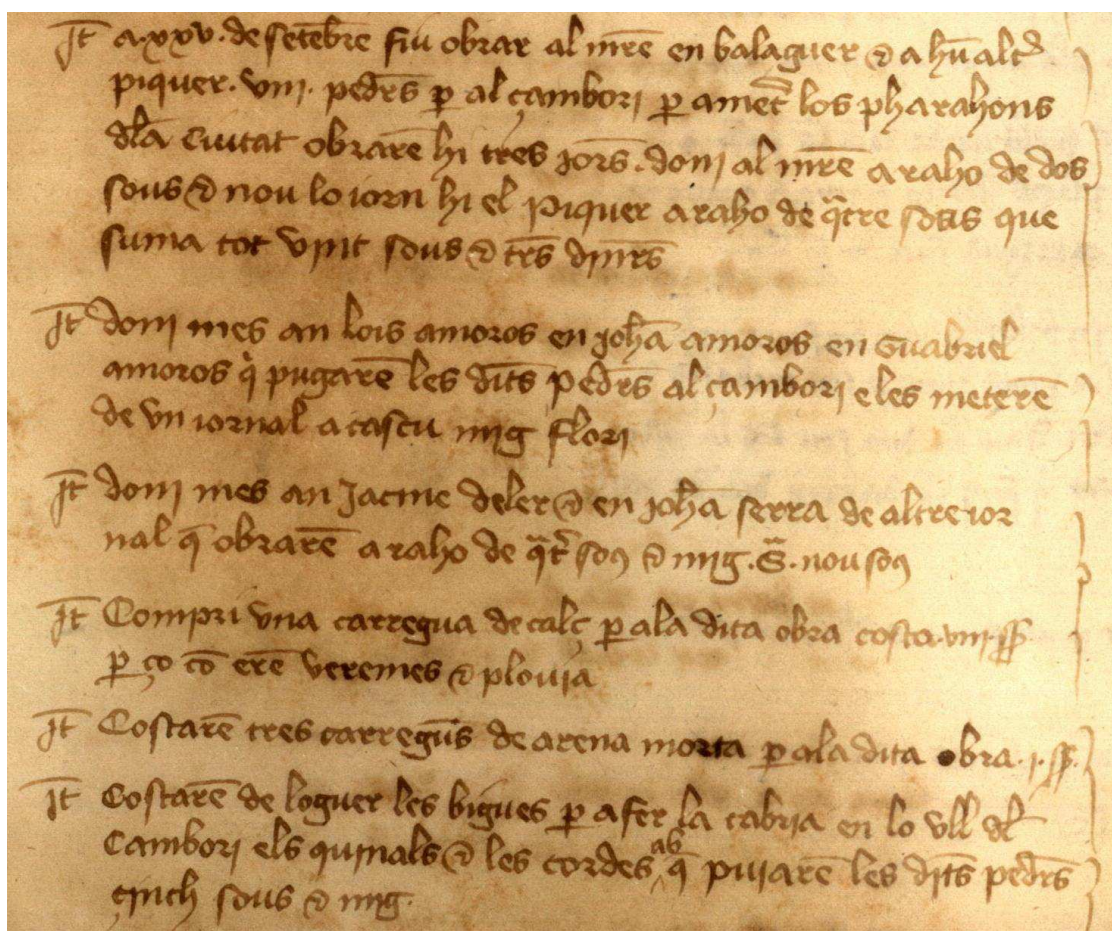 It a·xxv·de setēbre fiu obrar al mrē en balaguer & a hū altr̄
piquer· viii· pedrēs p̱ al çambori p̱ amet̄ los pharahons
dla Ciutat obrarē hi tres jors̄· doni al mrē a raho de dos
sous & nou lo iorn hi el piquer a raho de q̄tre sous que
suma tot vint sous & tr̄s dinr̄s
It doni mes an lois amoros en johā amoros en Guabriel
amoros q̄ pugarē les dits̄ pedr̄s al çambori e les meterē
de vn iornal a cascu mig flori
It doni mes an Jacme deler & en johā serra de altre ior
nal q̄ obrarē a raho de q̄tr̄ sos & mig· S̄· nou sos
It Compri vna carregua de calç p̱ ala dita obra costa·viii·ss̄
p̱ ço cō erē veremes & plouia
It Costarē tres carregūs de arena morta p̱ ala dita obra·i·ss̄·
It Costarē de loguer les bigues p̱ a fer la cabria en lo vll dl̄
Cambori els quinals & les cordes ab q̄ puiarē les dits̄ pedr̄s
cinch sous & mig·